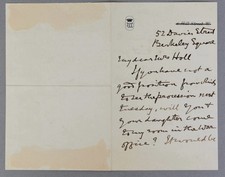 52 Davies Street
Berkeley Square
My dear Mrs Holl
If you have not a
good position from which
to see the procession next
Tuesday, will you &
your daughter come
to my room in the
office? It would be